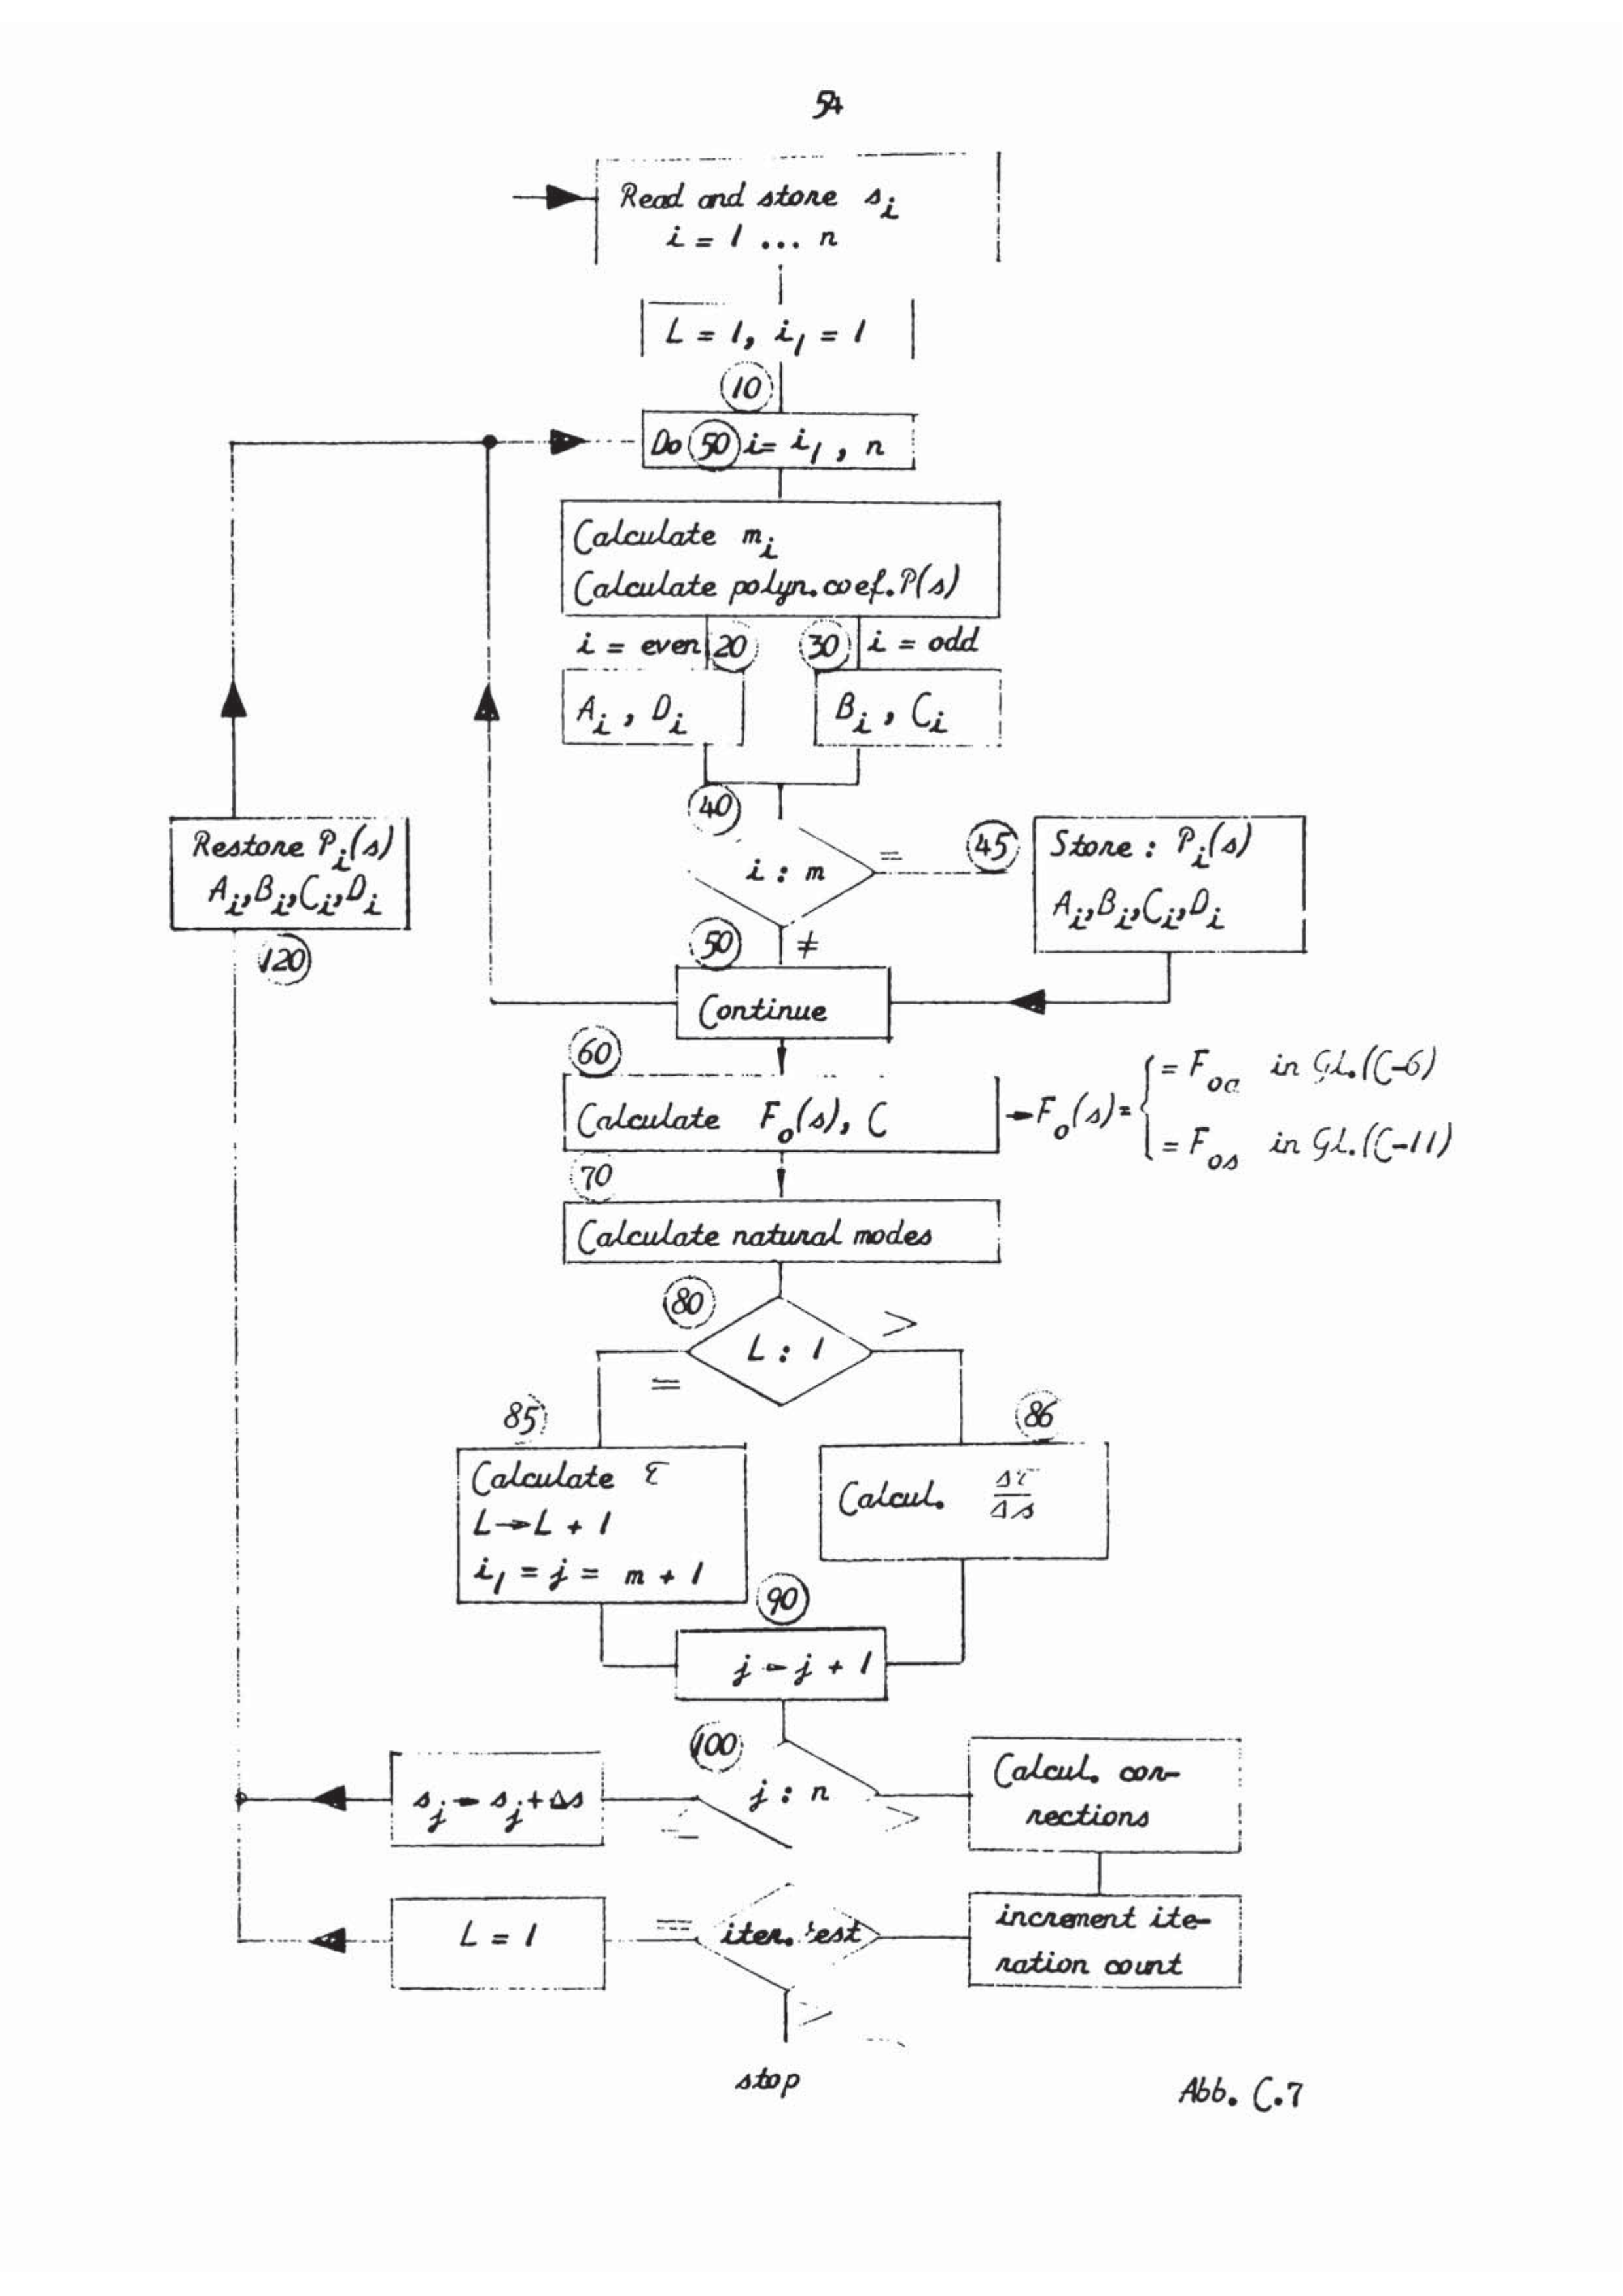 54
Read and store s_i
i = 1 ... n
L = 1, i_1 = 1
10
Do 50 i = i_1 , n
Calculate m_i
Calculate polyn. coef. P(s)
i = even 20
30 i = odd
A_i , D_i
B_i , C_i
40
i : m
=
45
Store : P_i(s)
A_i, B_i, C_i, D_i
Restore P_i(s)
A_i, B_i, C_i, D_i
120
50
≠
Continue
60
Calculate F_o(s), C
→ F_o(s) =
= F_oa in Gl. (C-6)
= F_os in Gl. (C-11)
70
Calculate natural modes
80
L : 1
>
=
85
Calculate τ
L → L + 1
i_1 = j = m + 1
86
Calcul. Δτ/Δs
90
j → j + 1
100
j : n
>
s_j → s_j + Δs
Calcul. cor-
rections
increment ite-
ration count
iter. test
=
L = 1
>
stop
Abb. C.7